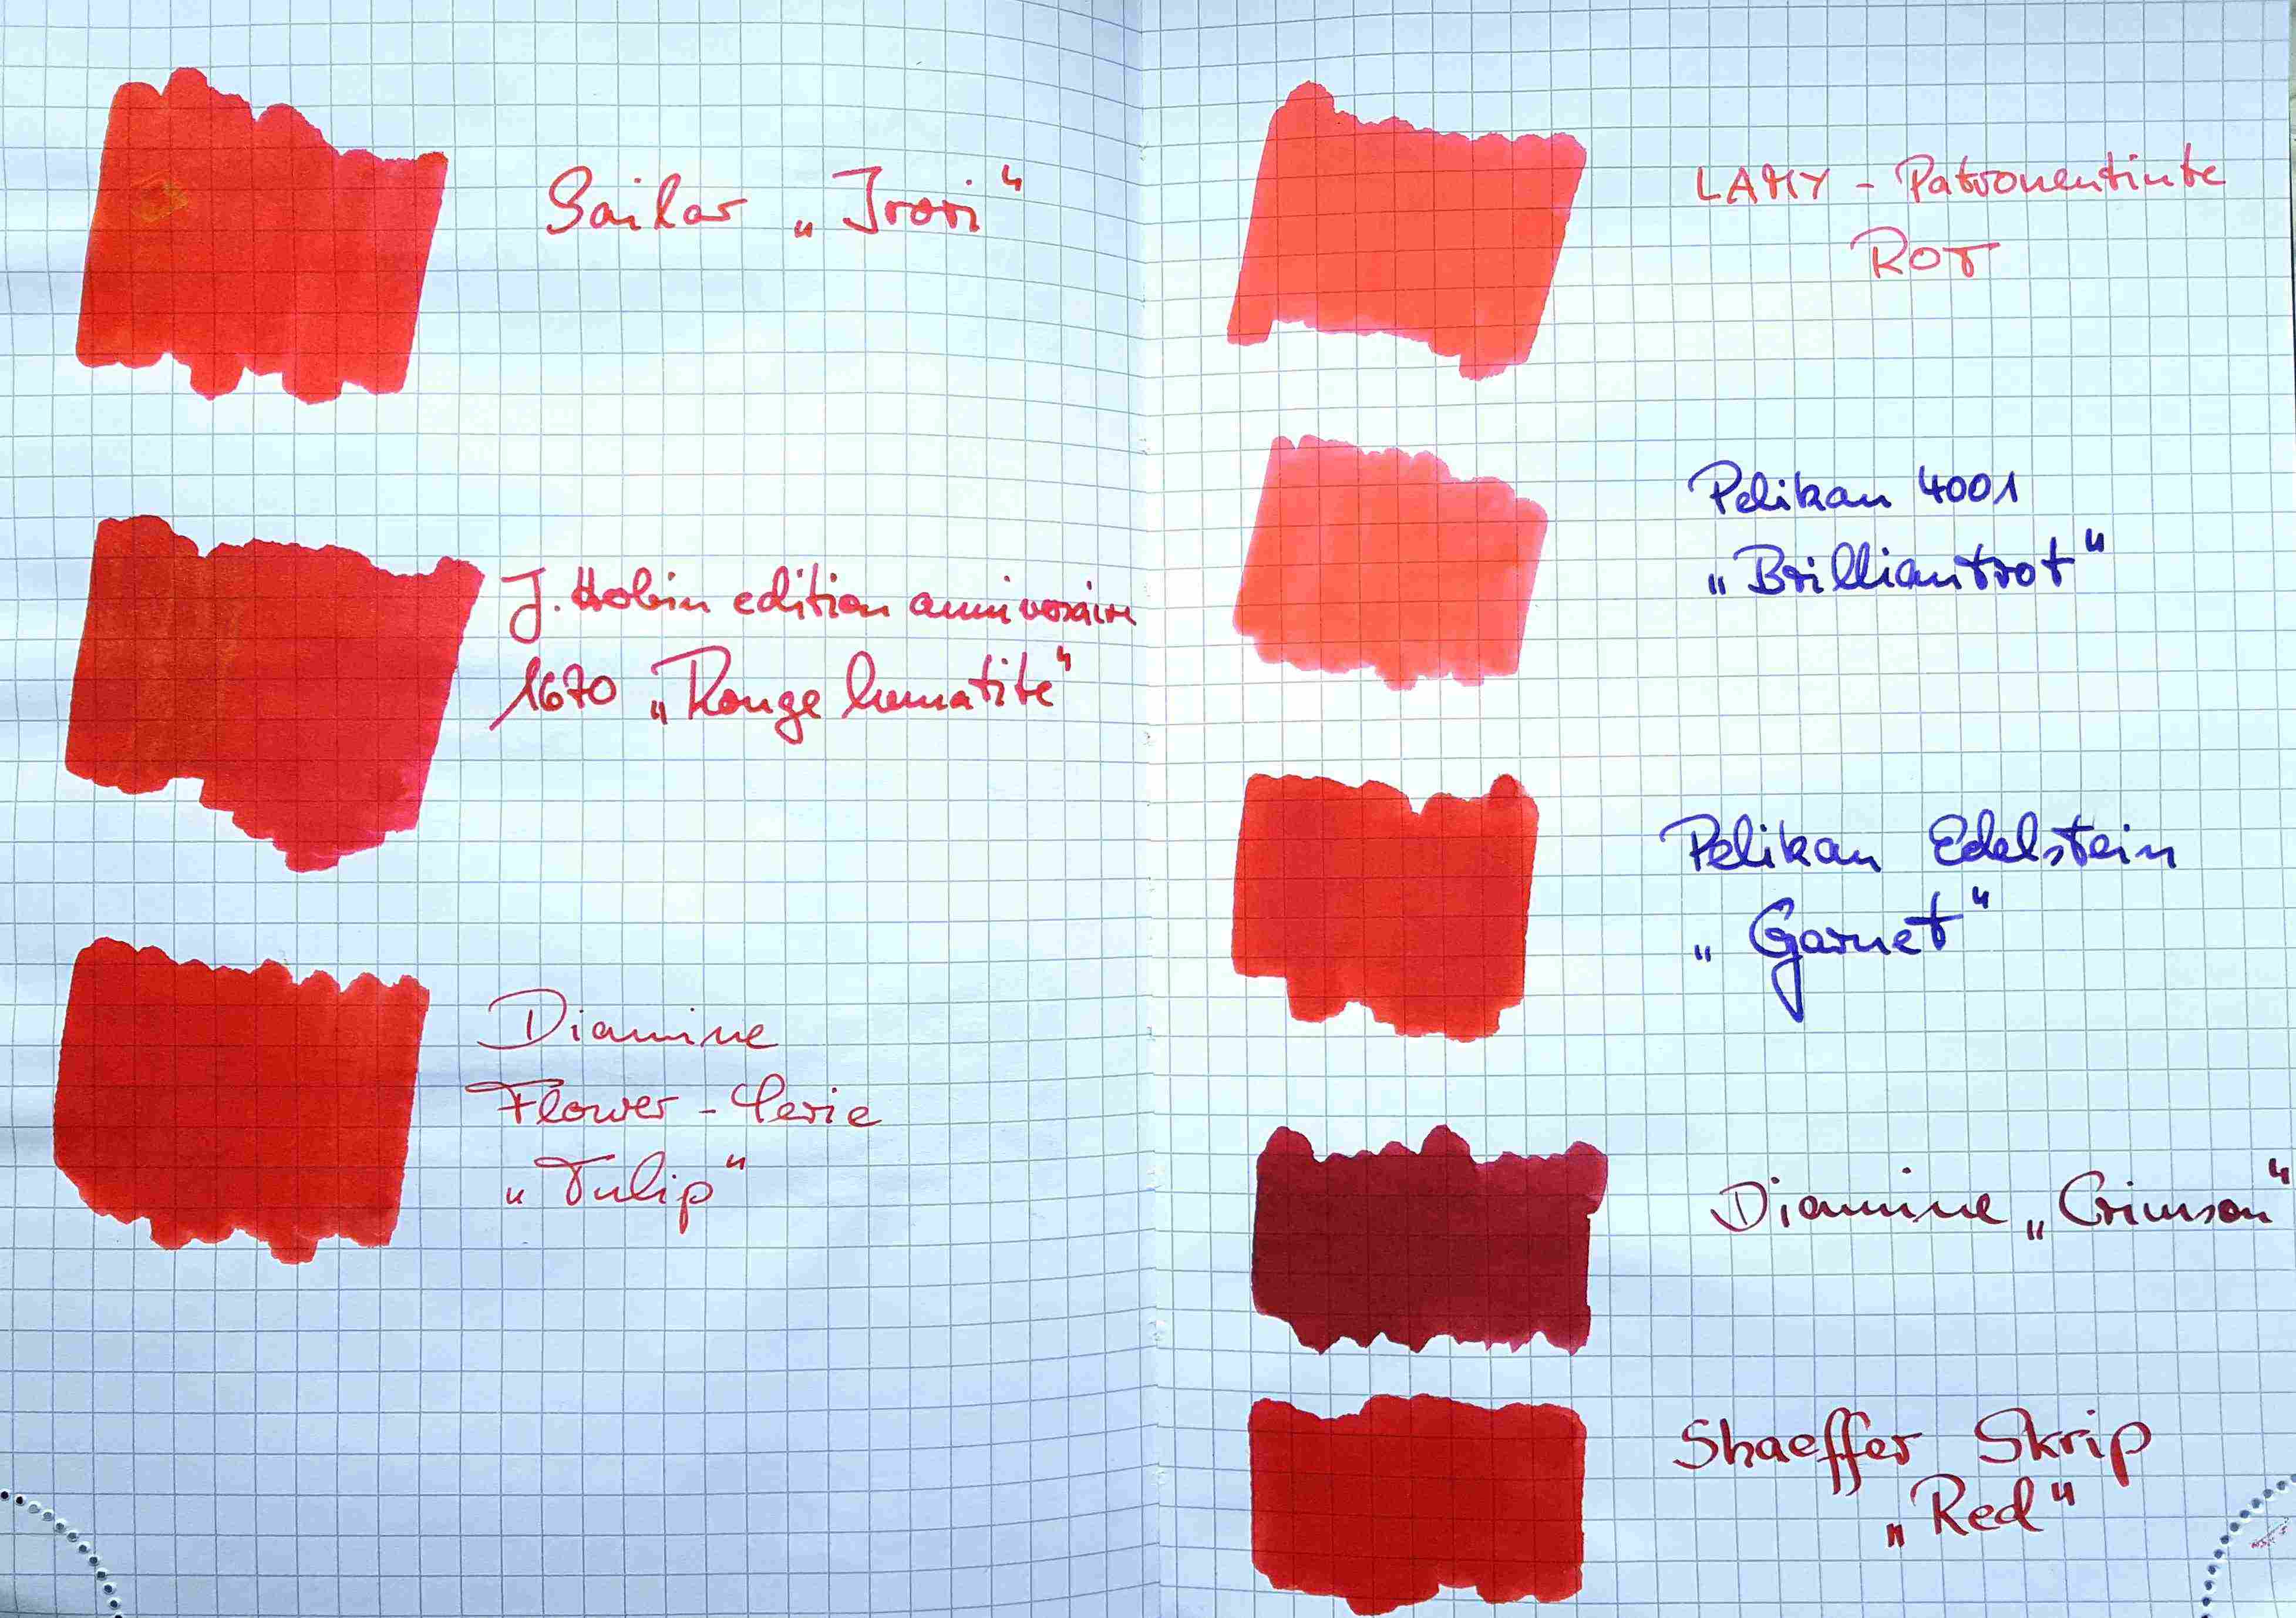 Sailor „Irori“
J. Herbin edition anniversaire
1670 „Rouge hematite“
Diamine
Flower - Serie
„Tulip“
LAMY - Patronentinte
ROT
Pelikan 4001
„Brilliantrot“
Pelikan Edelstein
„Garnet“
Diamine „Crimson“
Shaeffer Skrip
„Red“